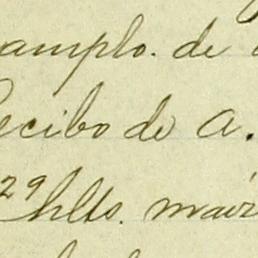 amplo. de
ecibo de A.
29 hlts. maiz